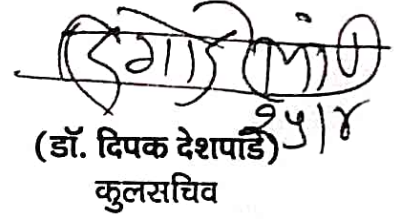 २५|४
(डॉ. दिपक देशपांडे)
कुलसचिव